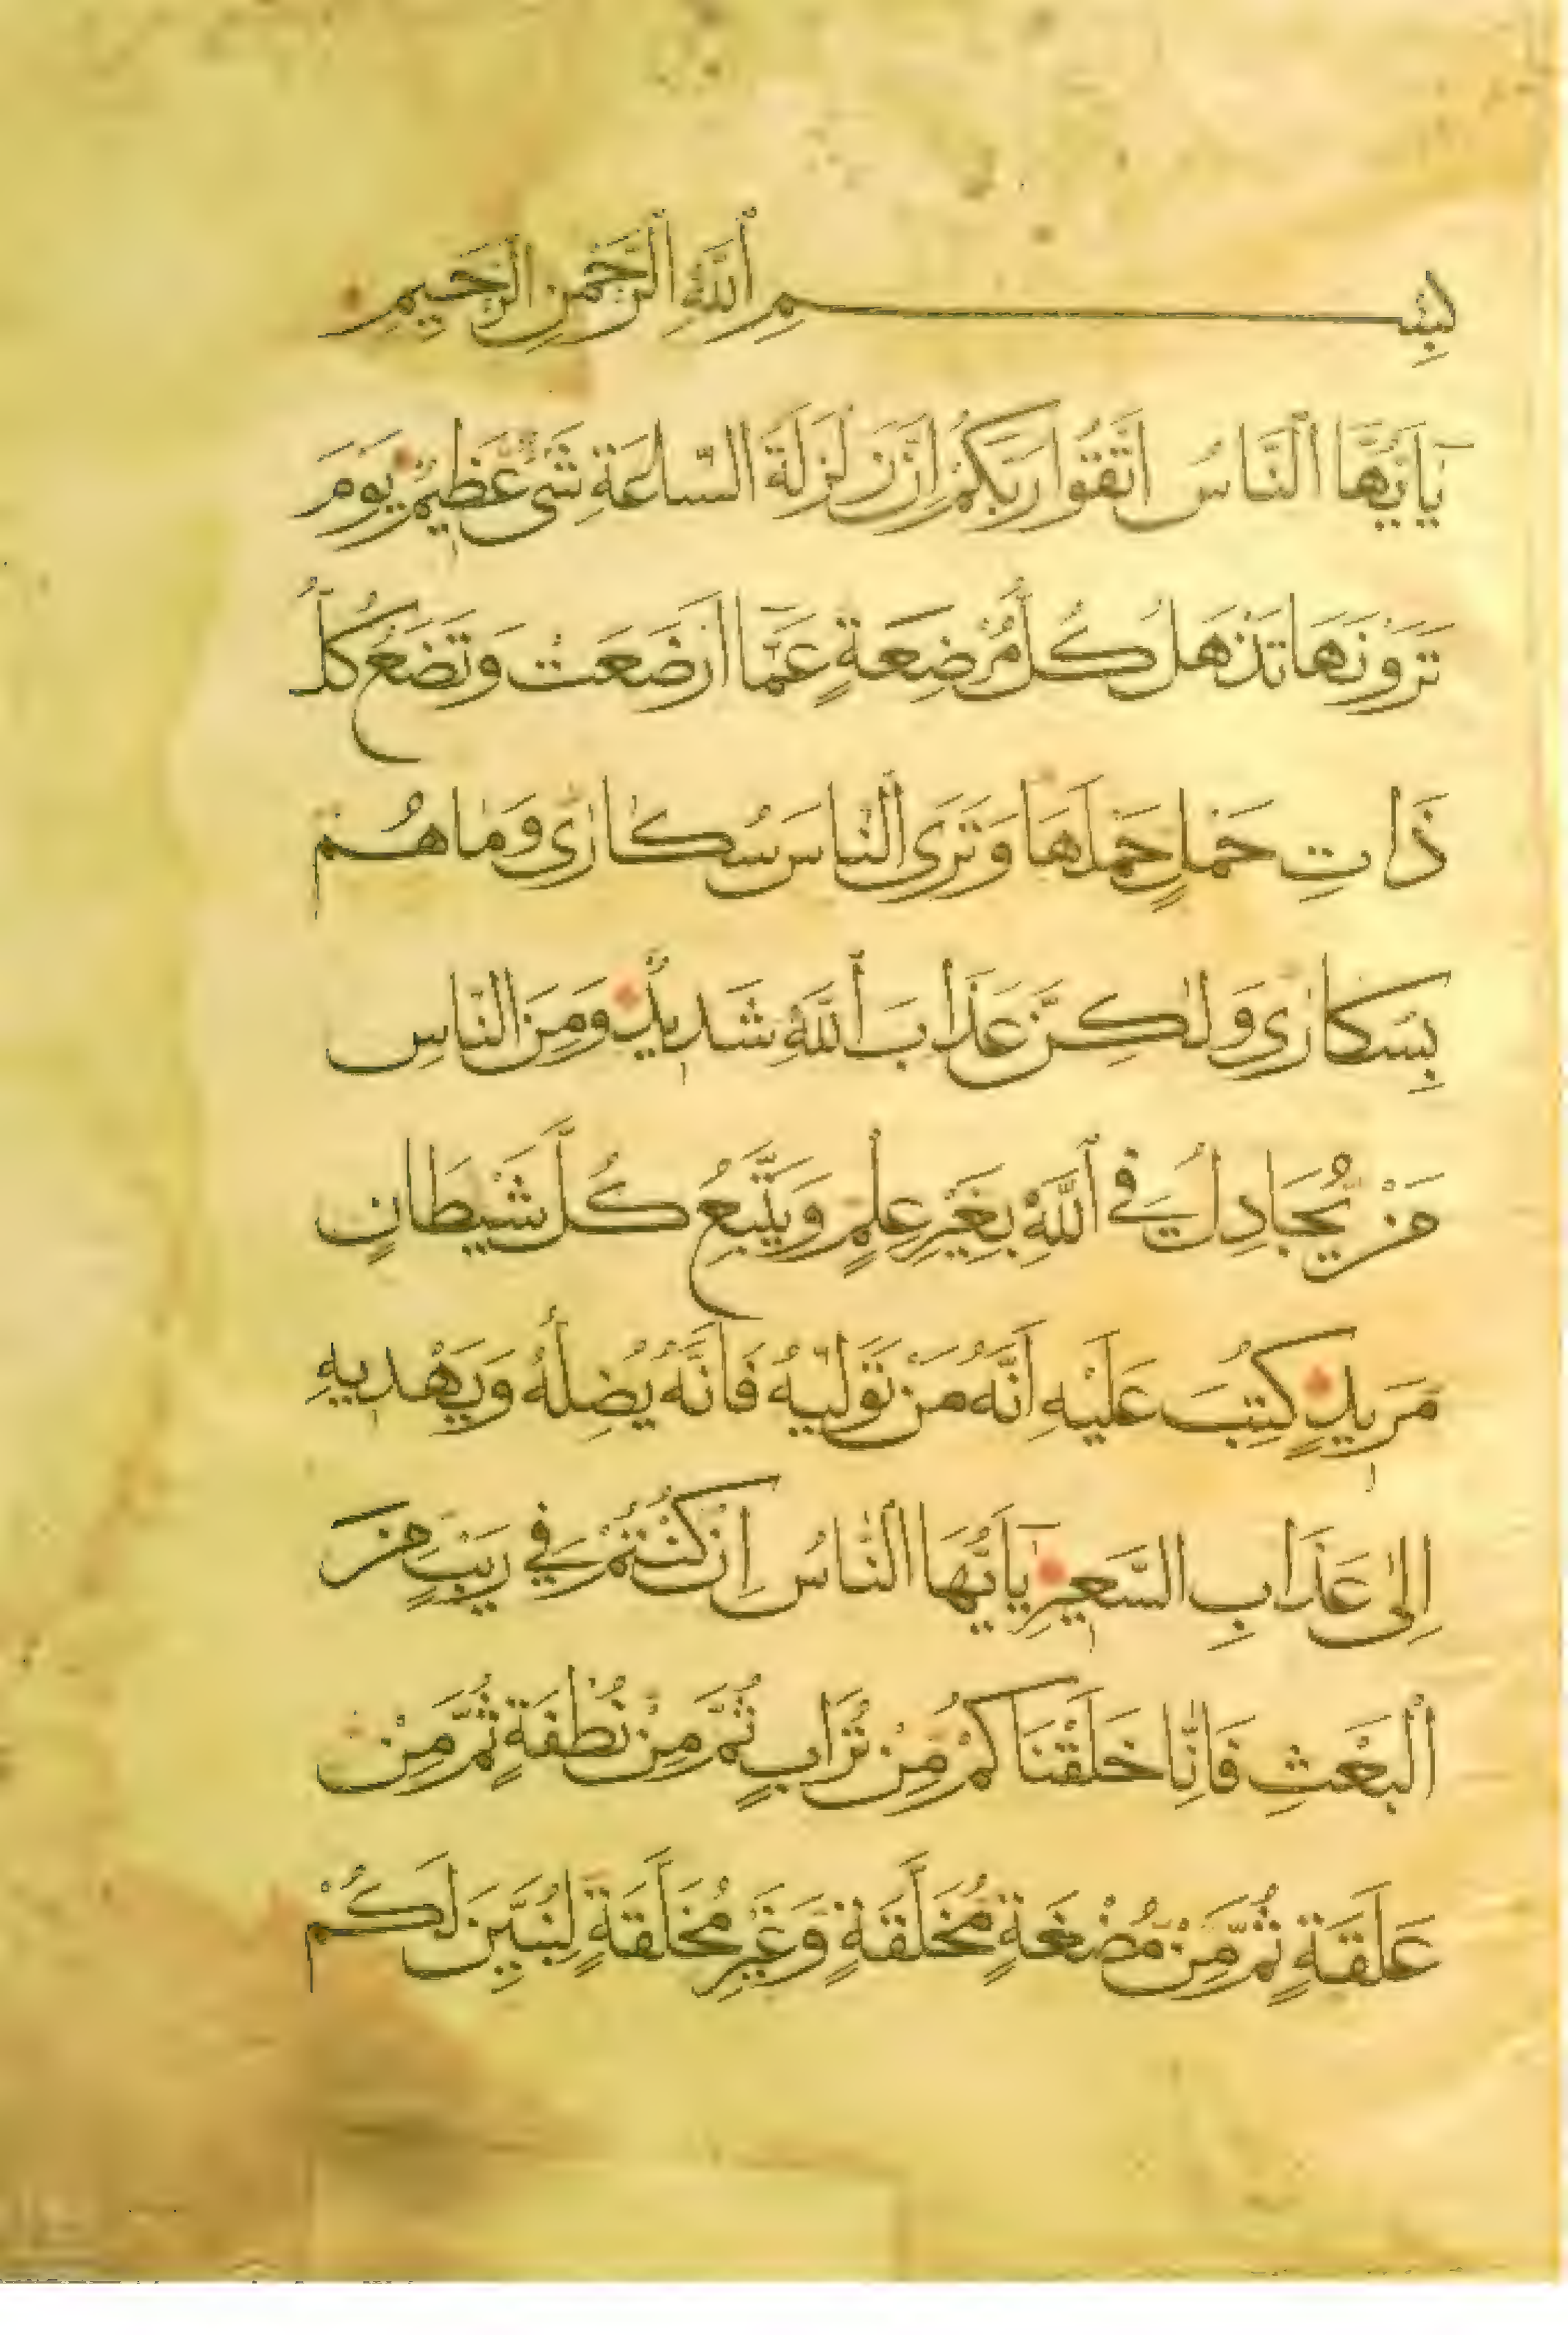 بِسْمِ ٱللَّهِ ٱلرَّحْمٰنِ ٱلرَّحِيمِ
يَٓاَيُّهَا ٱلنَّاسُ اتَّقُوا رَبَّكُمْ اِنَّ زَلْزَلَةَ السَّاعَةِ شَىْءٌ عَظِيمٌ يَوْمَ
تَرَوْنَهَا تَذْهَلُ كُلُّ مُرْضِعَةٍ عَمَّا اَرْضَعَتْ وَتَضَعُ كُلُّ
ذَاتِ حَمْلٍ حَمْلَهَا وَتَرَى النَّاسَ سُكَارٰى وَمَا هُمْ
بِسُكَارٰى وَلٰكِنَّ عَذَابَ ٱللَّهِ شَدِيدٌ وَمِنَ النَّاسِ
مَنْ يُجَادِلُ فِي ٱللَّهِ بِغَيْرِ عِلْمٍ وَيَتَّبِعُ كُلَّ شَيْطَانٍ
مَرِيدٍ كُتِبَ عَلَيْهِ اَنَّهُ مَنْ تَوَلَّيهُ فَاَنَّهُ يُضِلُّهُ وَيَهْدِيهِ
اِلٰى عَذَابِ السَّعِيرِ يَٓاَيُّهَا النَّاسُ اِنْ كُنْتُمْ فِي رَيْبٍ مِنَ
الْبَعْثِ فَاِنَّا خَلَقْنَاكُمْ مِنْ تُرَابٍ ثُمَّ مِنْ نُطْفَةٍ ثُمَّ مِنْ
عَلَقَةٍ ثُمَّ مِنْ مُضْغَةٍ مُخَلَّقَةٍ وَغَيْرِ مُخَلَّقَةٍ لِنُبَيِّنَ لَكُمْ